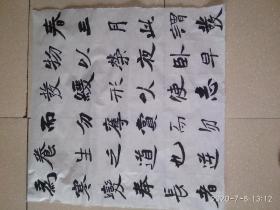 春三月此謂發
物以榮夜臥早
發緩形以使志
而勿奪賞而勿
養生之道也逆
為寒變奉長者
2020-7-8 13:12